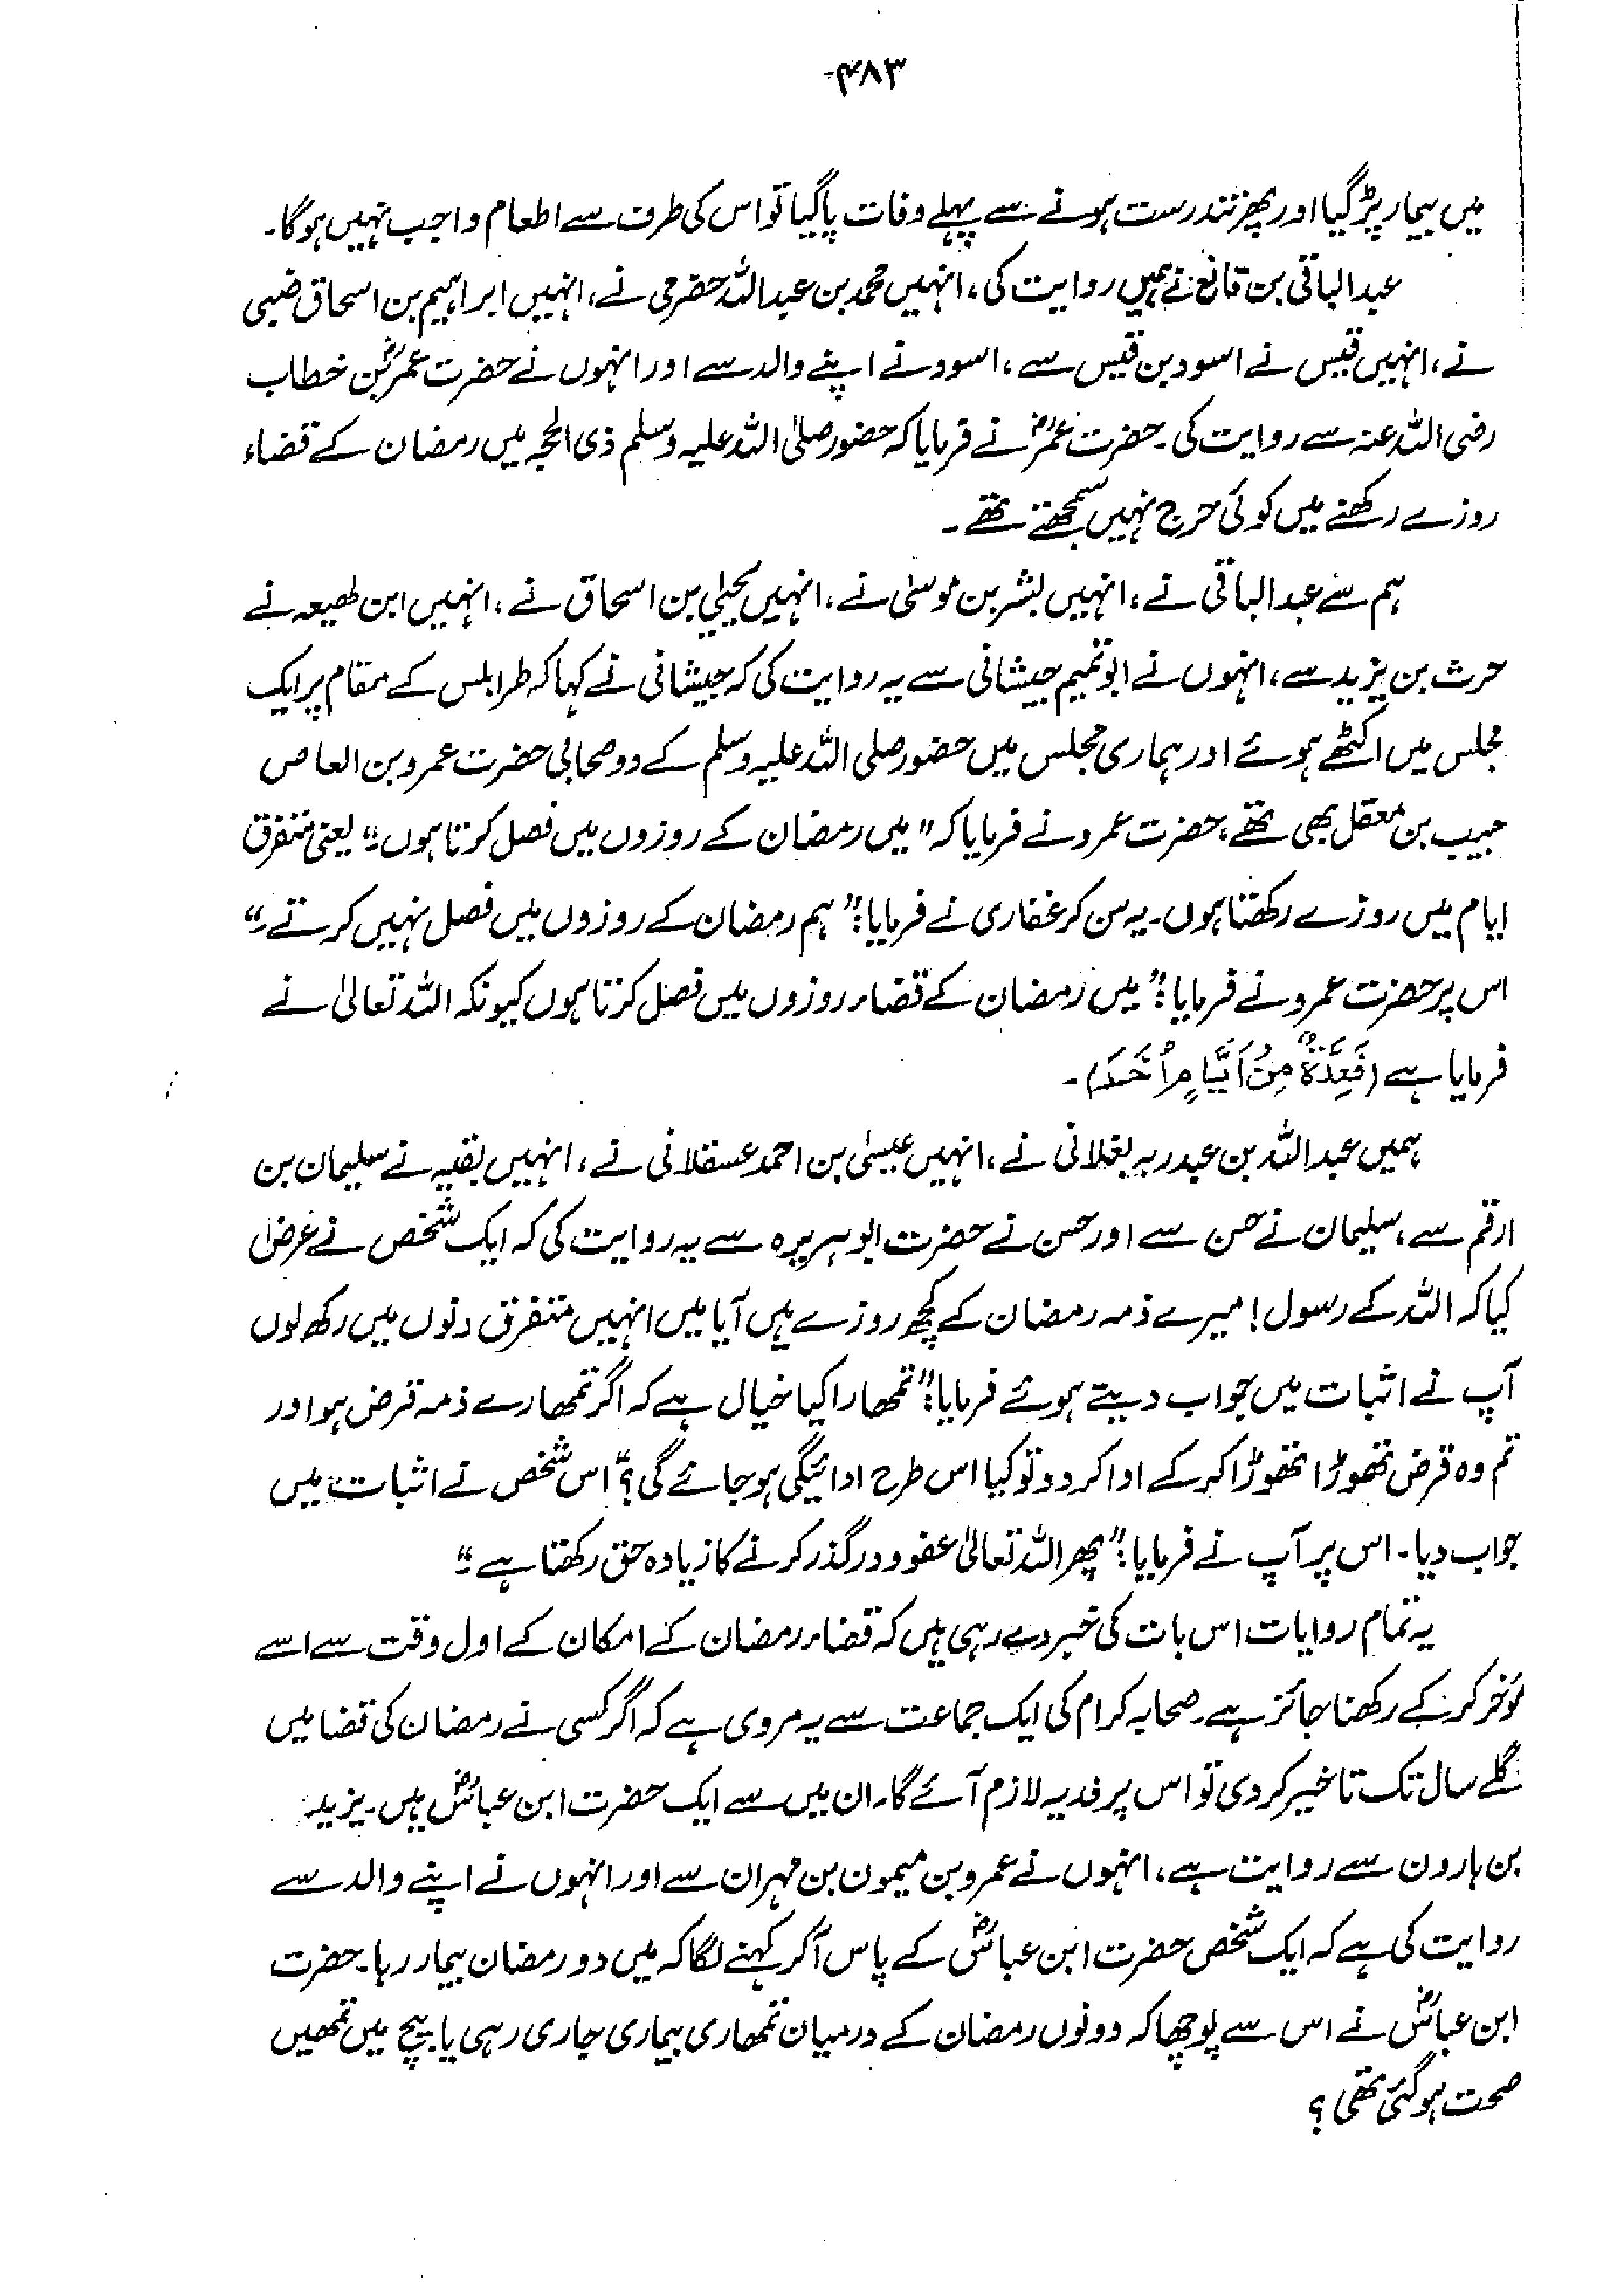 ۴۸۳
میں بیمار پڑ گیا اور پھر تندرست ہونے سے پہلے وفات پا گیا تو اس کی طرف سے اطعام واجب نہیں ہوگا۔
عبدالباقی بن قانع نے ہمیں روایت کی، انہیں محمد بن عبداللہ حضرمی نے، انہیں ابراہیم بن اسحاق ضبی
نے، انہیں قیس نے اسود بن قیس سے، اسود نے اپنے والد سے اور انہوں نے حضرت عمرؓ بن خطاب
رضی اللہ عنہ سے روایت کی۔ حضرت عمرؓ نے فرمایا کہ حضور صلی اللہ علیہ وسلم ذی الحجہ میں رمضان کے قضاء
روزے رکھنے میں کوئی حرج نہیں سمجھتے تھے۔
ہم سے عبدالباقی نے، انہیں بشر بن موسیٰ نے، انہیں یحییٰ بن اسحاق نے، انہیں ابن لھیعہ نے
حرث بن یزید سے، انہوں نے ابوتمیم جیشانی سے یہ روایت کی کہ جیشانی نے کہا کہ طرابلس کے مقام پر ایک
مجلس میں اکٹھے ہوئے اور ہماری مجلس میں حضور صلی اللہ علیہ وسلم کے دو صحابی حضرت عمرو بن العاص
حبیب بن معقل بھی تھے، حضرت عمرو نے فرمایا کہ "میں رمضان کے روزوں میں فصل کرتا ہوں" یعنی متفرق
ایام میں روزے رکھتا ہوں۔ یہ سن کر غفاری نے فرمایا: "ہم رمضان کے روزوں میں فصل نہیں کرتے۔"
اس پر حضرت عمرو نے فرمایا: "میں رمضان کے قضاء روزوں میں فصل کرتا ہوں کیونکہ اللہ تعالیٰ نے
فرمایا ہے (فَعِدَّةٌ مِنْ اَیَّامٍ اُخَرَ)۔
ہمیں عبداللہ بن عبدربہ بغلانی نے، انہیں عیسیٰ بن احمد عسقلانی نے، انہیں بقیہ نے سلیمان بن
ارقم سے، سلیمان نے حسن سے اور حسن نے حضرت ابوہریرہ سے یہ روایت کی کہ ایک شخص نے عرض
کیا کہ اللہ کے رسول! میرے ذمہ رمضان کے کچھ روزے ہیں آیا میں انہیں متفرق دنوں میں رکھ لوں
آپ نے اثبات میں جواب دیتے ہوئے فرمایا: "تمھارا کیا خیال ہے کہ اگر تمھارے ذمہ قرض ہو اور
تم وہ قرض تھوڑا تھوڑا کرکے ادا کر دو تو کیا اس طرح ادائیگی ہو جائے گی؟" اس شخص نے اثبات میں
جواب دیا۔ اس پر آپ نے فرمایا: "پھر اللہ تعالیٰ عفو و درگذر کرنے کا زیادہ حق رکھتا ہے"
یہ تمام روایات اس بات کی خبر دے رہی ہیں کہ قضاء رمضان کے امکان کے اول وقت سے اسے
مؤخر کرکے رکھنا جائز ہے۔ صحابہ کرام کی ایک جماعت سے یہ مروی ہے کہ اگر کسی نے رمضان کی قضا میں
گلے سال تک تاخیر کر دی تو اس پر فدیہ لازم آئے گا۔ ان میں سے ایک حضرت ابن عباسؓ ہیں۔ یزید
بن ہارون سے روایت ہے، انہوں نے عمرو بن میمون بن مہران سے اور انہوں نے اپنے والد سے
روایت کی ہے کہ ایک شخص حضرت ابن عباسؓ کے پاس آ کر کہنے لگا کہ میں دو رمضان بیمار رہا۔ حضرت
ابن عباسؓ نے اس سے پوچھا کہ دونوں رمضان کے درمیان تمھاری بیماری جاری رہی یا بیچ میں تمھیں
صحت ہو گئی تھی؟